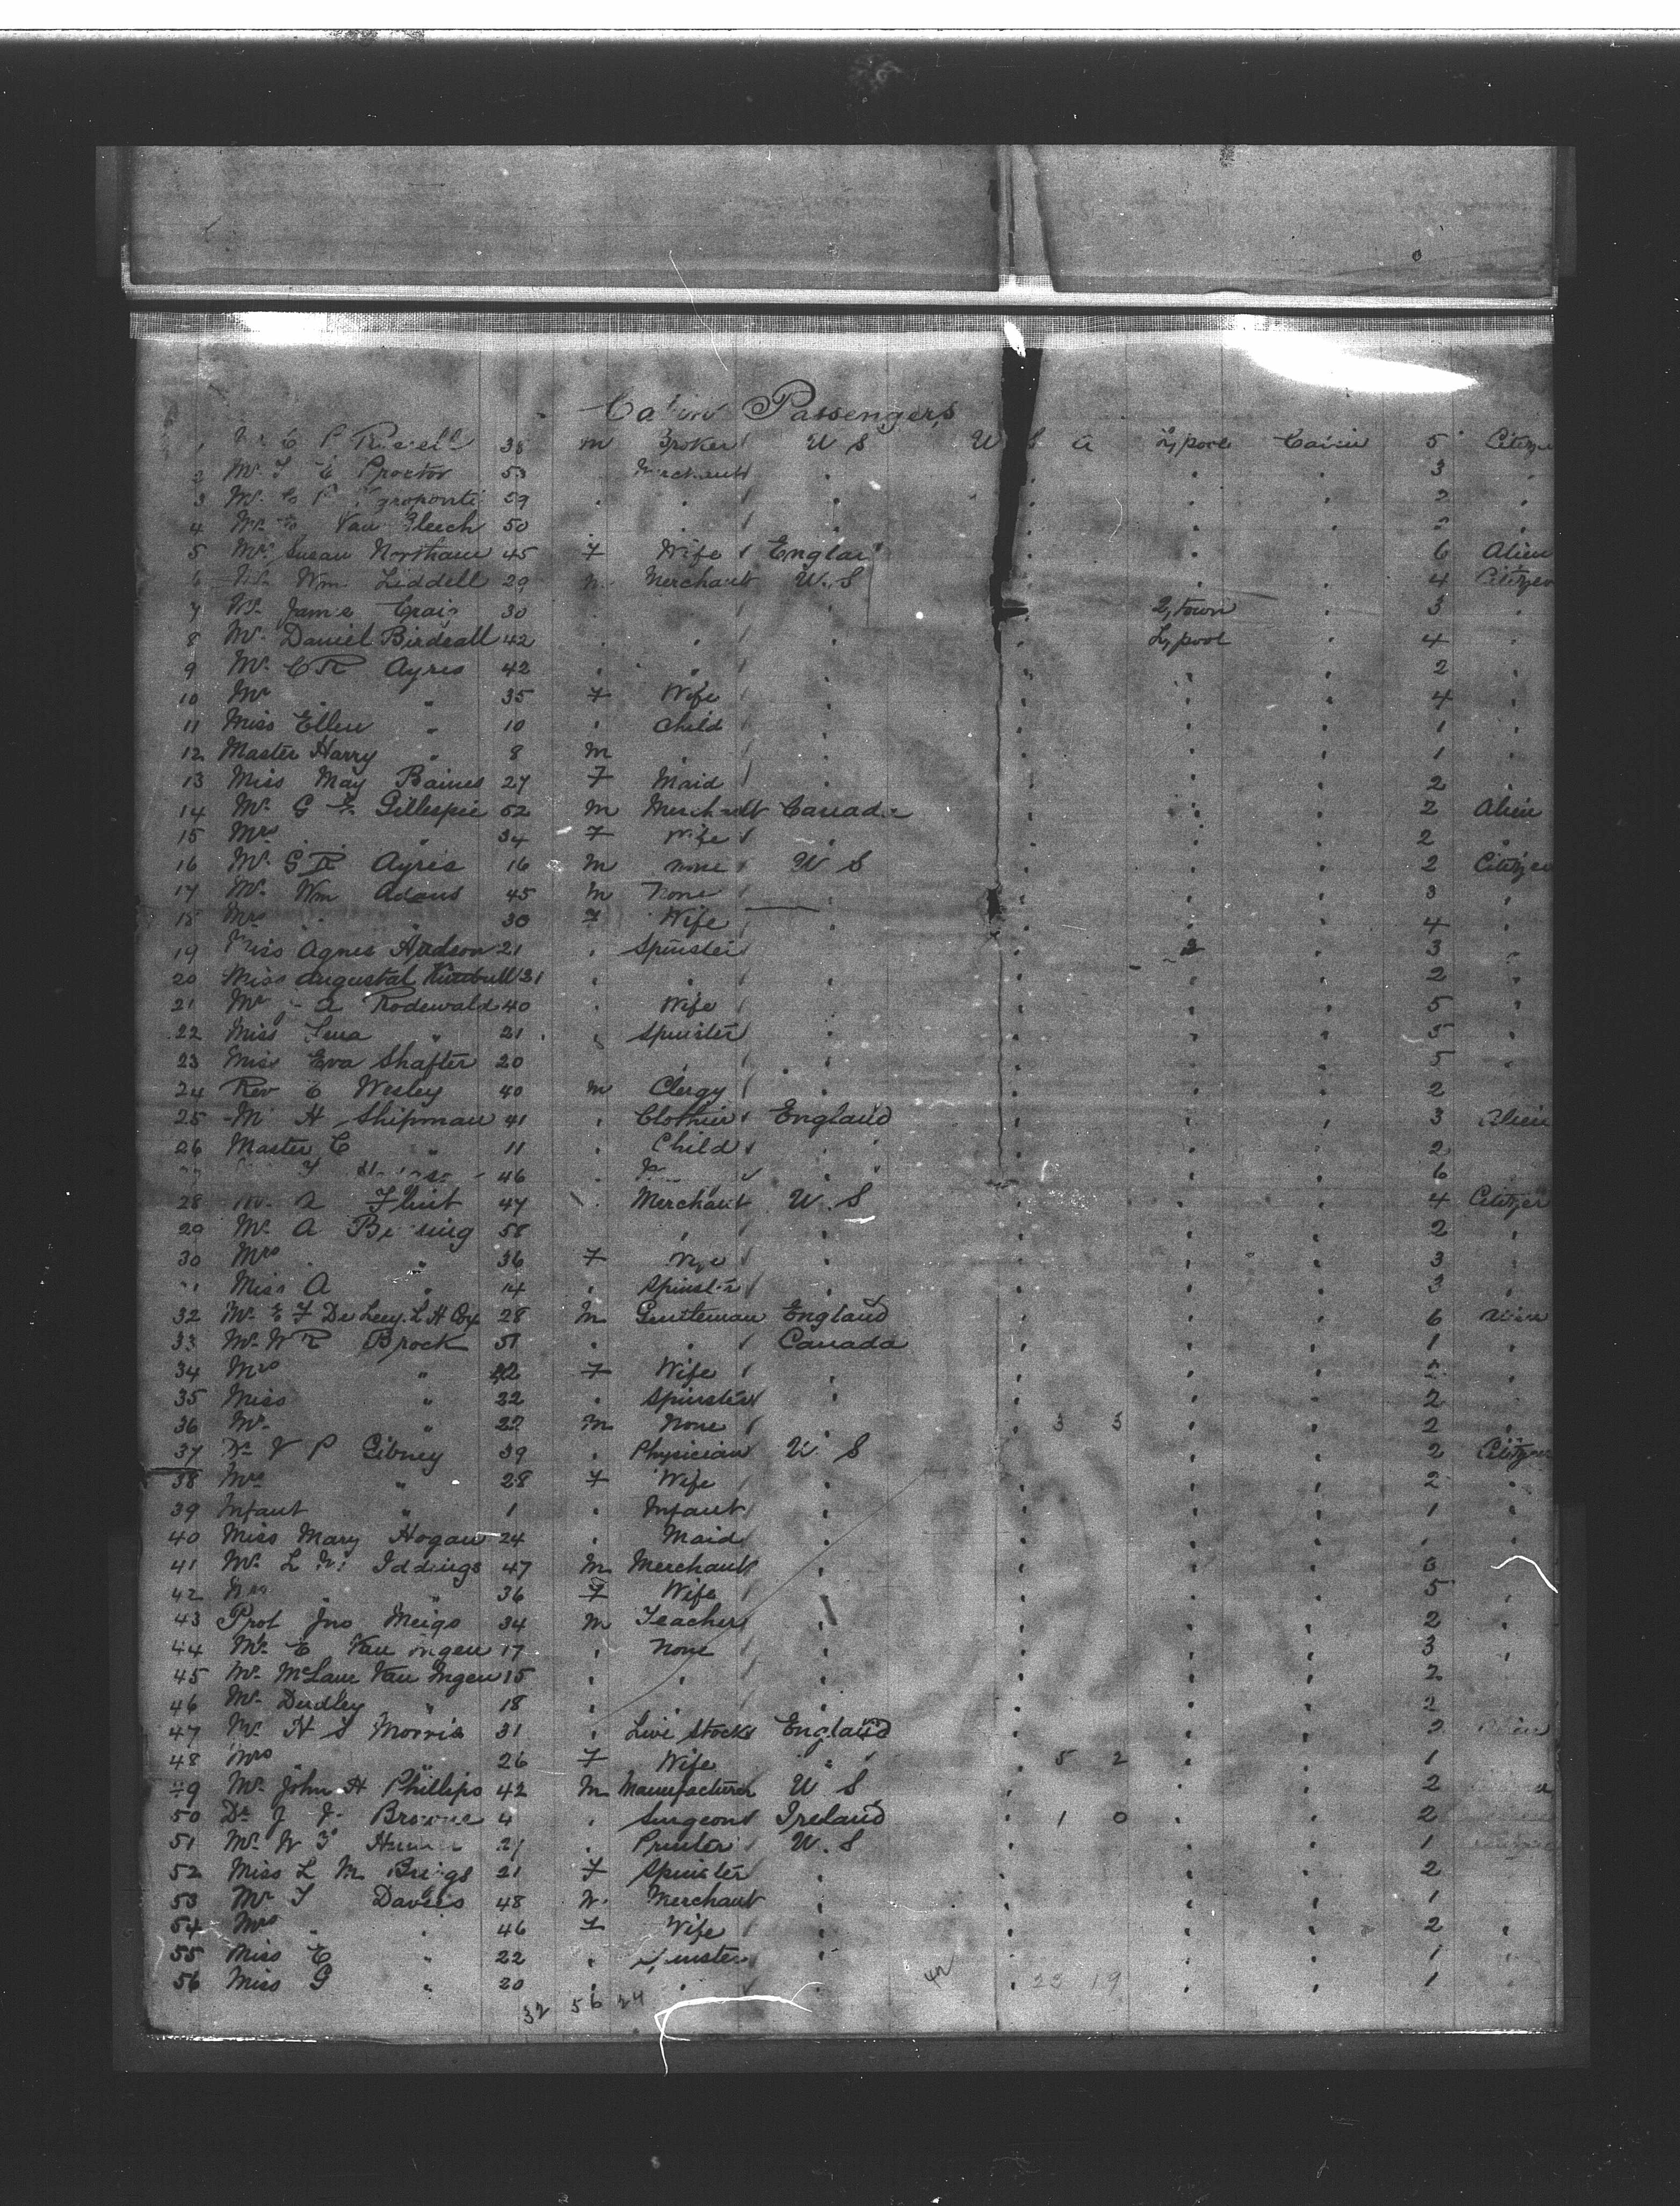 Cabin Passengers
1 38 m Broker U S U S A L,pool Cabin 5 Citizen
2 Mr. Proctor 53 Merchant " " " " 3 "
3 Mr. 59 " " " " " " 2 "
4 Van 50 " " " " " 2 "
5 Mrs. Susan Northam 45 F Wife England " " 6 Alien
6 Mr. Wm. Liddell 29 m Merchant U.S. " " 4 Citizen
7 Mr. James Craig 30 " " " " Q,town " 3 "
8 Mr. Daniel Birdsall 42 " " " " L,pool " 4 "
9 Mr. C R Ayres 42 " " " " " " 2 "
10 Mrs " 35 F Wife " " " " 4 "
11 Miss Ellen " 10 " Child " " " " 1 "
12 Master Harry " 8 m " " " " " 1 "
13 Miss May Baines 27 F Maid " " " " 2 "
14 Mr. G Gillespie 52 m Merchant Canada " " " 2 Alien
15 Mrs " 34 F Wife " " " " 2 "
16 Mr. G R Ayres 16 m none U S " " " 2 Citizen
17 Mr. Wm Adams 45 m None " " " " 3 "
18 Mrs " 30 F Wife " " " " 4 "
19 Miss Agnes Hudson 21 " Spinster " " " 3 "
20 Miss Augusta 31 " " " " " " 2 "
21 A Rodewald 40 " Wife " " " " 5 "
22 Miss Lena " 21 " Spinster " " " " 5 "
23 Miss Eva Shafter 20 " " " " " 5 "
24 Rev C Wesley 40 m Clergy " " " " 2
25 H Shipman 41 " Clothier England " " " 3 Alien
26 Master C " 11 " Child " " " " 2 "
46 " " " " " 6 "
28 Mr. A Flint 47 " Merchant U.S " " " 4 Citizen
29 Mr. A 58 " " " " " 2 "
30 Mrs " 36 F Wife " " " " 3 "
Miss A " 14 " Spinster " " " " 3 "
32 Mr. E F De 28 m Gentleman England " " " 6 Alien
33 Mr. W R Brock 51 " " Canada " " " 1 "
34 Mrs " F Wife " " " " 2 "
35 Miss " 22 " Spinster " " " " 2 "
36 Mr. " 22 m None " " 3 3 " " 2 "
37 Dr V P Gibney 39 " Physician U S " " " 2 Citizen
38 Mrs " 28 F Wife " " " " 2 "
39 Infant " 1 " Infant " " " " 1 "
40 Miss Mary Hogan 24 " Maid " " " " " "
41 Mr. L Iddings 47 m Merchant " " " "
42 Mrs " 36 F Wife " " " " 5 "
43 Prof Jno Meigs 34 m Teacher " " " " 2 "
44 Mr. E Van Ingen 17 " None " " " " 3 "
45 Mr. McLane Van Ingen 15 " " " " " " 2
46 Mr. Dudley " 18 " " " " " 2
47 Mr. H S Morris 31 " Live Stock England " " " 2 Alien
48 Mrs " 26 F Wife " " 5 2 " " 1
49 Mr. John H Phillips 42 m Manufacturer U S " " " 2
50 Dr J Browne " Surgeon Ireland " 1 0 " " 2
51 Mr. W " Printer U.S " " " 1
52 Miss L M Briggs 21 F Spinster " " " " 2
53 Mr. T Davies 48 m Merchant " " " " 1
54 Mrs " 46 F Wife " " " " 2 "
55 Miss E " 22 " Spinster " " " " 1 "
56 Miss G " 20 " " " " 23 19 " " 1
32 56 24
42